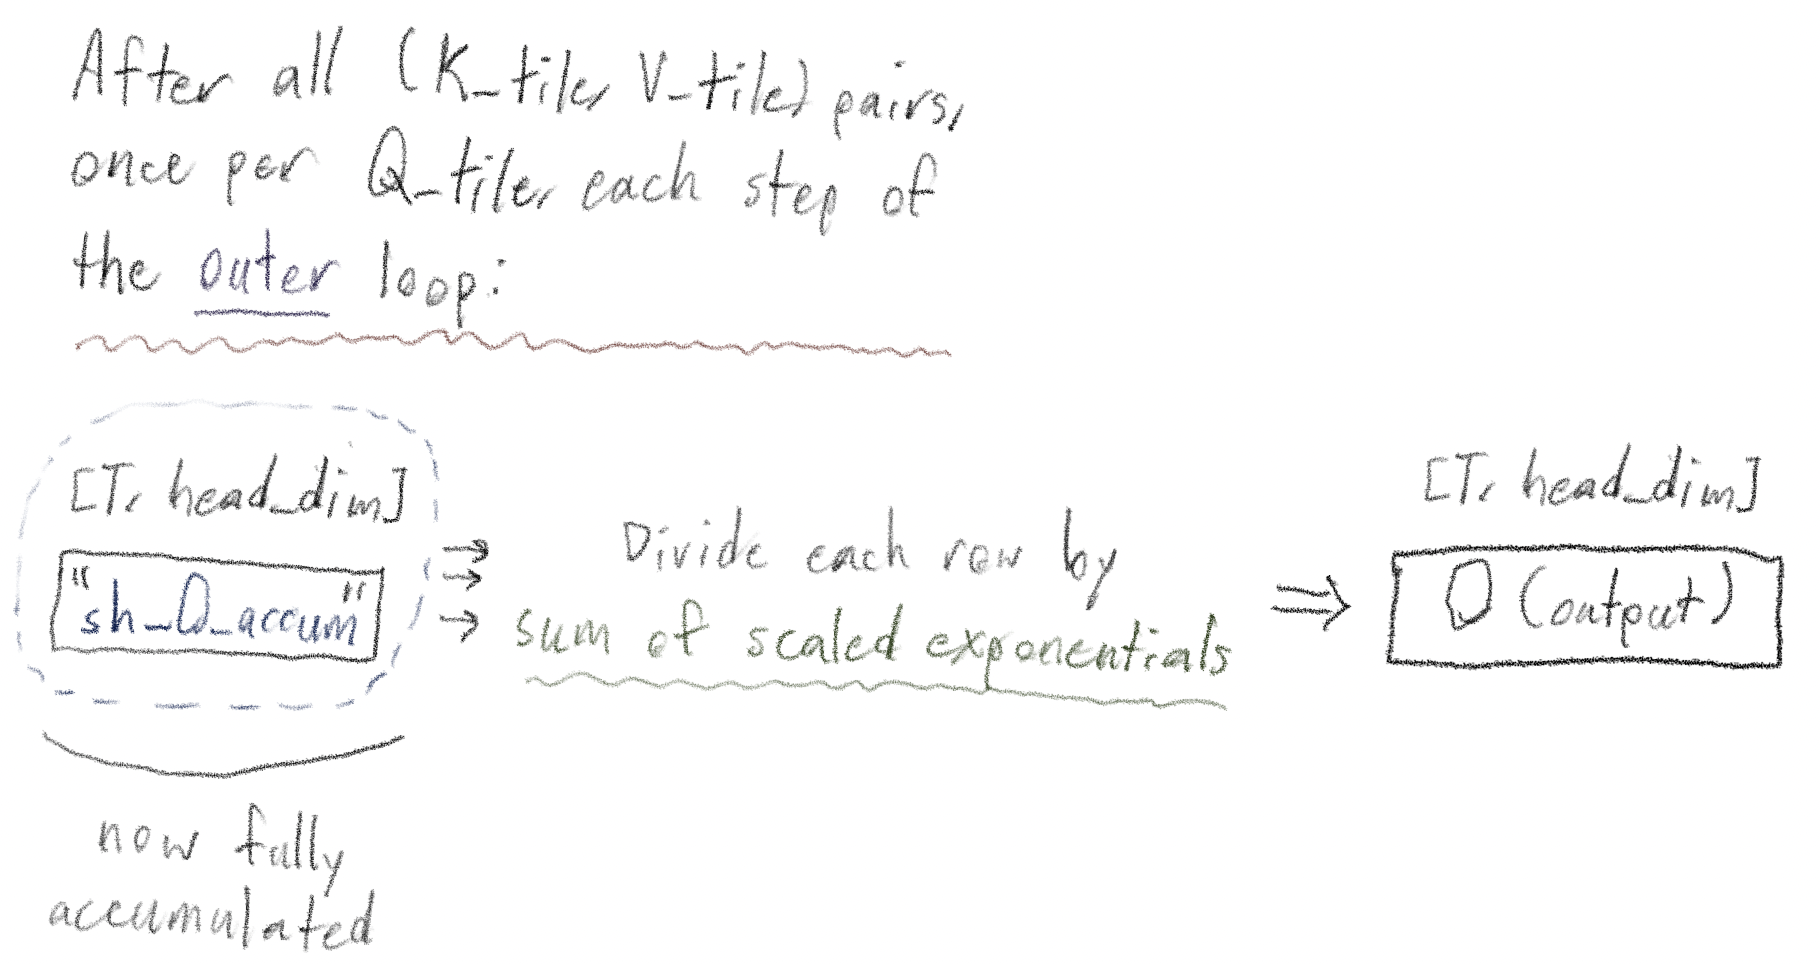 After all (K_tile, V_tile) pairs,
once per Q_tile, each step of
the outer loop:
[T, head_dim]
"sh_O_accum"
now fully
accumulated
Divide each row by
sum of scaled exponentials
[T, head_dim]
O (output)